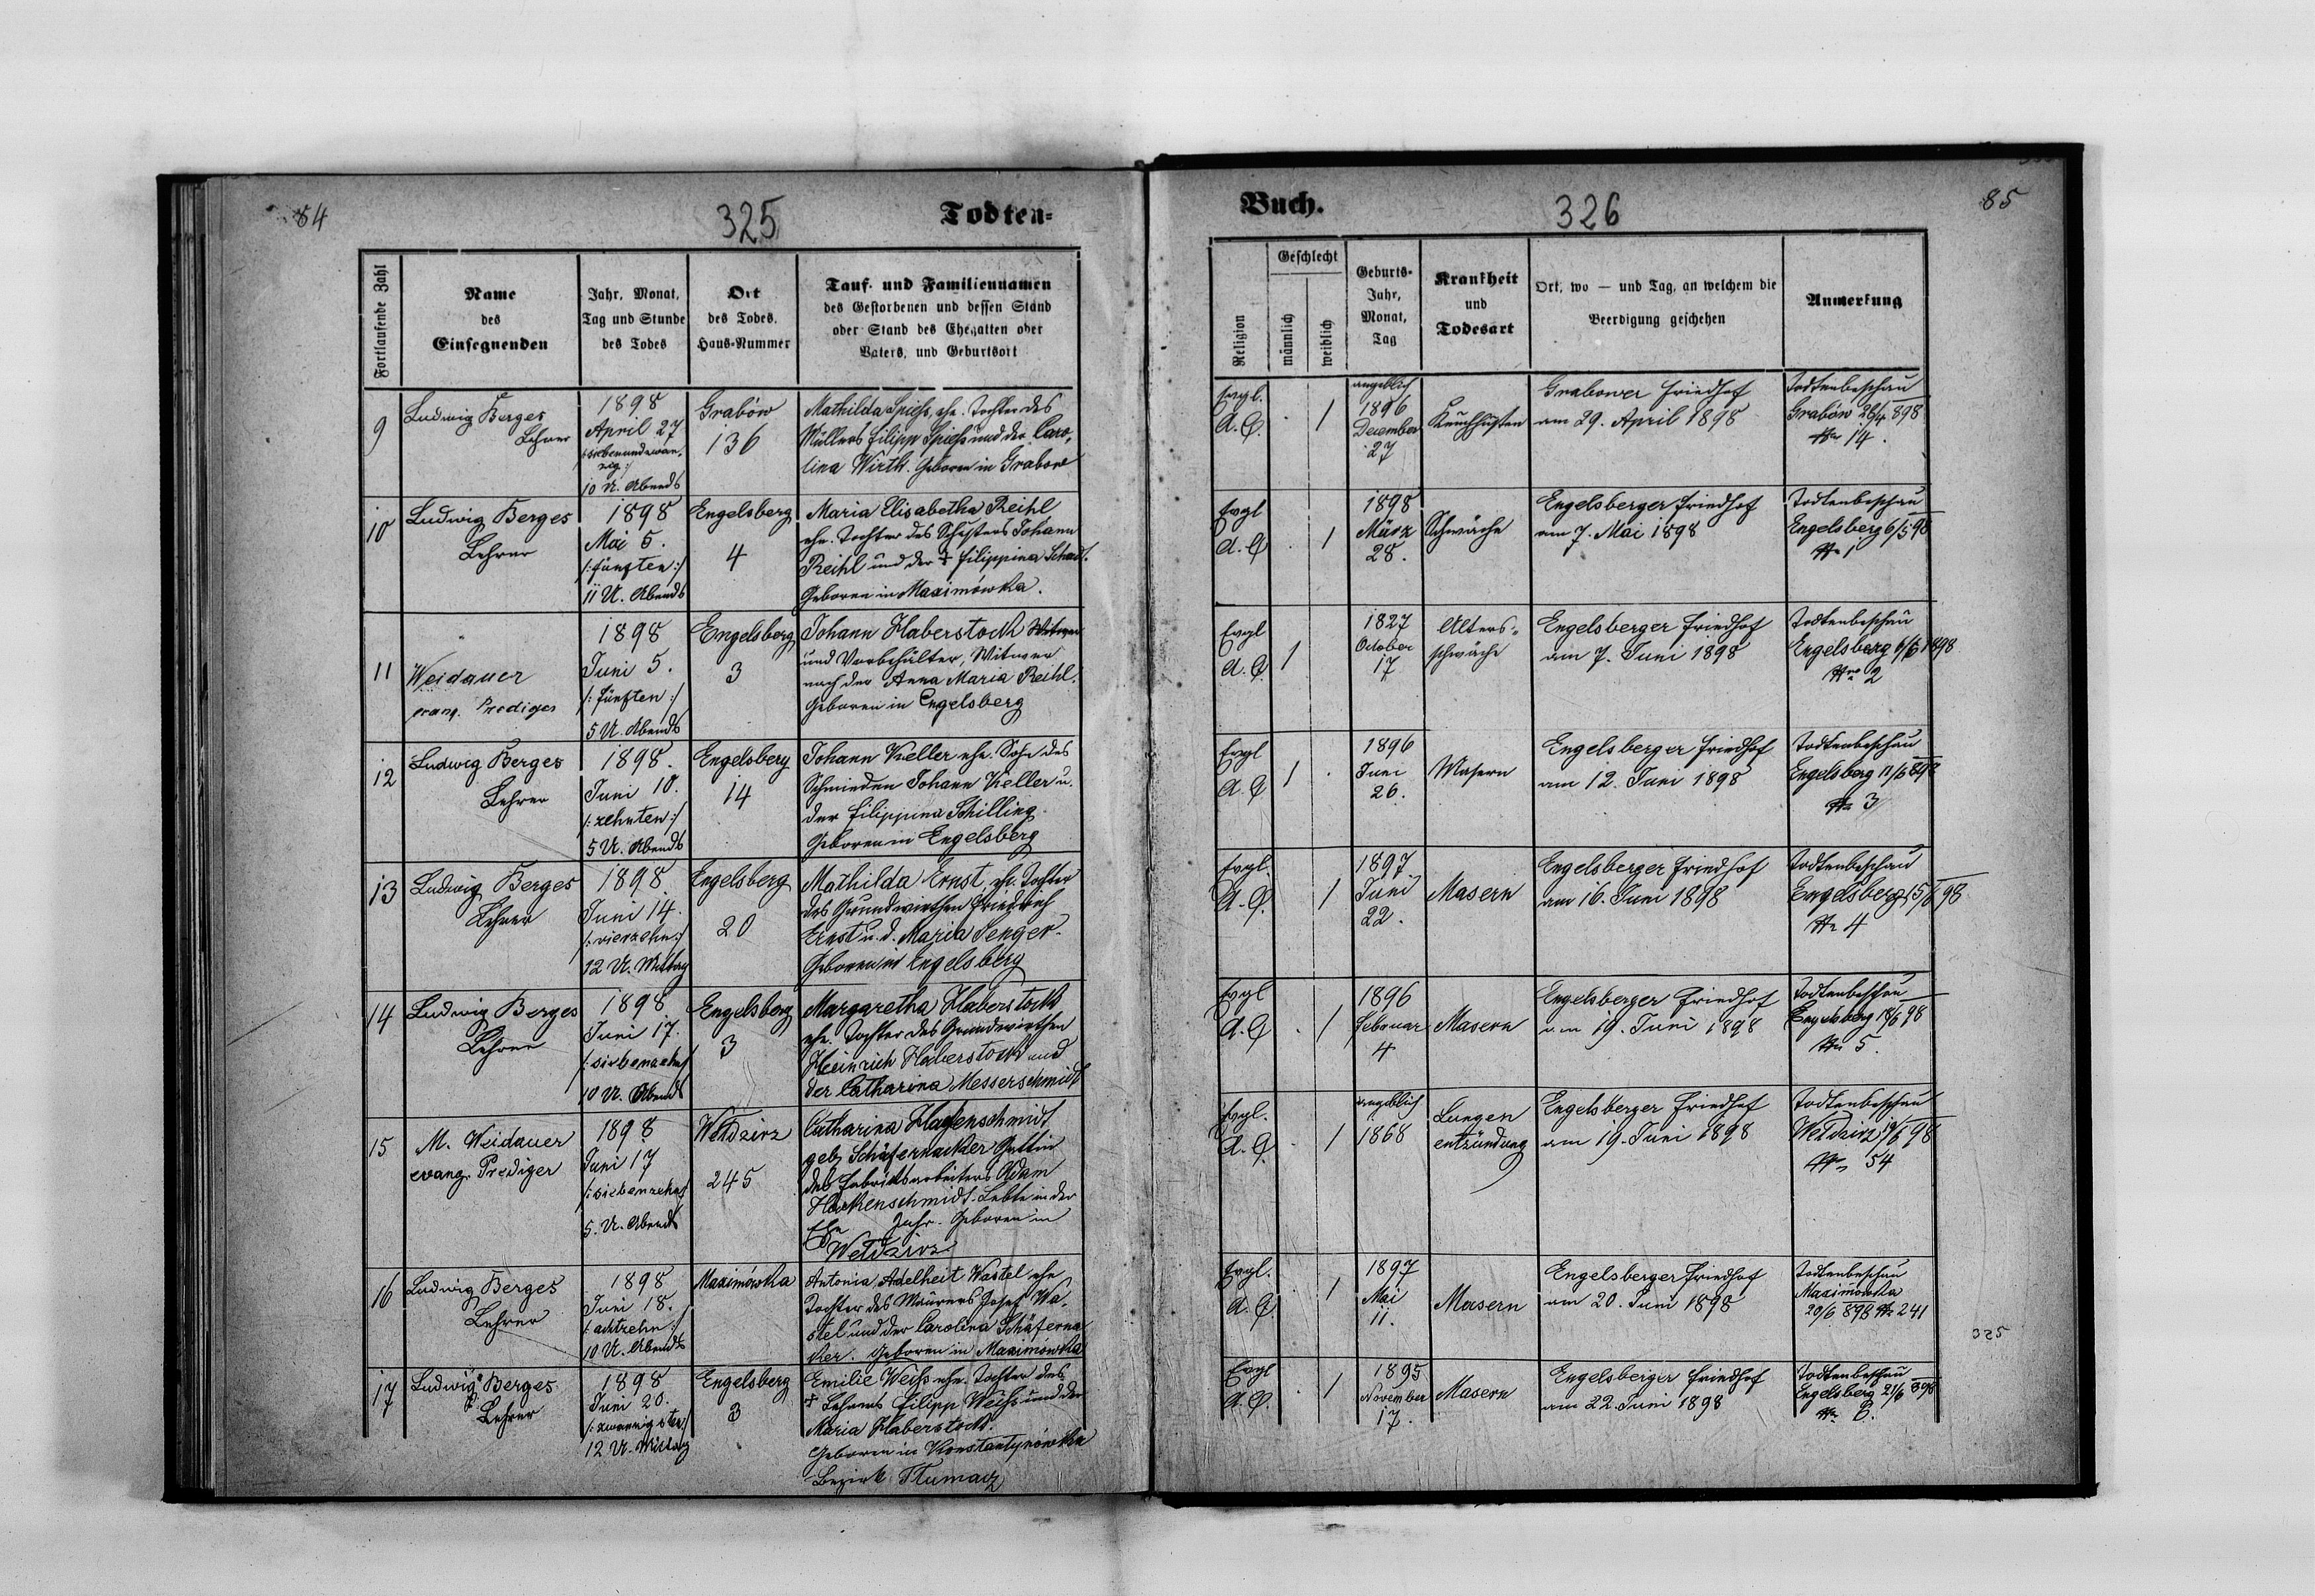 84
325
Todten=
Fortlaufende Zahl
Name
des
Einsegnenden
Jahr, Monat,
Tag und Stunde
des Todes
Ort
des Todes,
Haus-Nummer
Tauf- und Familiennamen
des Gestorbenen und dessen Stand
oder Stand des Ehegatten oder
Vaters, und Geburtsort
9
Ludwig Berges
Lehrer
1898
April 27
/:siebenundzwan,
zig:/
10 U. Abends
Grabów
136
Mathilda Spiess, ehe. Tochter des
Müllers Filipp Spiess und der Caro,
lina Wirth. Geboren in Grabow
10
Ludwig Berges
Lehrer
1898
Mai 5.
/:fünften:/
11 U. Abends
Engelsberg
4
Maria Elisabetha Reihl
ehe. Tochter des Schusters Johann
Reihl und der † Filippina Schadt.
Geboren in Maximówka.
11
Weidauer
evang. Prediger
1898
Juni 5.
/:fünften:/
5 U. Abends
Engelsberg
3
Johann Haberstock Witwer
und Vorbehälter, Witwer
nach der Anna Maria Reihl.
Geboren in Engelsberg
12
Ludwig Berges
Lehrer
1898.
Juni 10.
/:zehnten:/
5 U. Abends
Engelsberg
14
Johann Keller ehe. Sohn des
Schmieden Johann Keller u.
der Filippina Schilling.
Geboren in Engelsberg
13
Ludwig Berges
Lehrer
1898.
Juni 14.
/:vierzehn:/
12 U. Mittag
Engelsberg
20
Mathilda Ernst, ehe. Tochter
des Grundwirthen Friedrich
Ernst u. d. Maria Senger.
Geboren in Engelsberg
14
Ludwig Berges
Lehrer
1898
Juni 17.
/:siebenzehn/
10 U. Abends
Engelsberg
3
Margaretha Haberstock
ehe. Tochter des Grundwirthen
Heinrich Haberstock und
der Catharina Messerschmidt
15
M. Weidauer
evang. Prediger
1898
Juni 17
/:siebenzehn/
5. U. Abends
Wełdzirz
245
Catharina Hakenschmidt
geb. Schäfernacker Gattin
des Fabriksarbeiters Adam
Hakenschmidt. Lebte in der
Ehe Jahr. Geboren in
Wełdzirz
16
Ludwig Berges
Lehrer
1898
Juni 18.
/:achtzehn:/
10 U. Abends
Maximówka
Antonia Adelheit Wastel ehe
Tochter des Maurers Josef Wa,
stel und der Carolina Schäferna
ker. Geboren in Maximówka
17
Ludwig Berges
Lehrer
1898
Juni 20.
/:zwanzigsten:/
12 U. Mittag
Engelsberg
3
Emilie Weihs ehe. Tochter des
† Lehrers Filipp Weihs und der
Maria Haberstock.
Geboren in Konstantynówka
Bezirk Tłumacz
Buch.
326
85
Religion
Geschlecht
männlich
weiblich
Geburts-
Jahr,
Monat,
Tag
Krankheit
und
Todesart
Ort, wo — und Tag, an welchem die
Beerdigung geschehen
Anmerkung
Evgl.
A.C.
1
angeblich
1896
December
27
Keuchhusten
Grabower Friedhof
am 29. April 1898
Todtenbeschau
Grabów 28/4 898
Nr 14.
Evgl
A.C
1
1898
März
28.
Schwäche
Engelsberger Friedhof
am 7. Mai 1898
Todtenbeschau
Engelsberg 6/5 98
Nr 1
Evgl
A.C
1
1827
October
17
Alters-
schwäche
Engelsberger Friedhof
am 7. Juni 1898
Todtenbeschau
Engelsberg 6/6 1898
Nro 2
Evgl
A.C
1
1896
Juni
26.
Masern
Engelsberger Friedhof
am 12. Juni 1898
Todtenbeschau
Engelsberg 11/6 898
Nr 3
Evgl.
A.C.
1
1897.
Juni
22.
Masern
Engelsberger Friedhof
am 16. Juni 1898
Todtenbeschau
Engelsberg 15/6 98
Nr 4
Evgl
A.C
1
1896
Februar
4
Masern
Engelsberger Friedhof
am 19. Juni 1898
Todtenbeschau
Engelsberg 18/6 98
Nr 5.
Evgl.
A.C.
1
angeblich
1868
Lungen
entzündung
Engelsberger Friedhof
am 19. Juni 1898
Todtenbeschau
Wełdzirz 19/6 98
Nr 54
Evgl.
A.C.
1
1897
Mai
11.
Masern
Engelsberger Friedhof
am 20. Juni 1898
Todtenbeschau
Maximówka
20/6 898 Nr 241
325
Evgl
A.C.
1
1895
November
17.
Masern
Engelsberger Friedhof
am 22. Juni 1898
Todtenbeschau
Engelsberg 21/6 898
Nr 6.